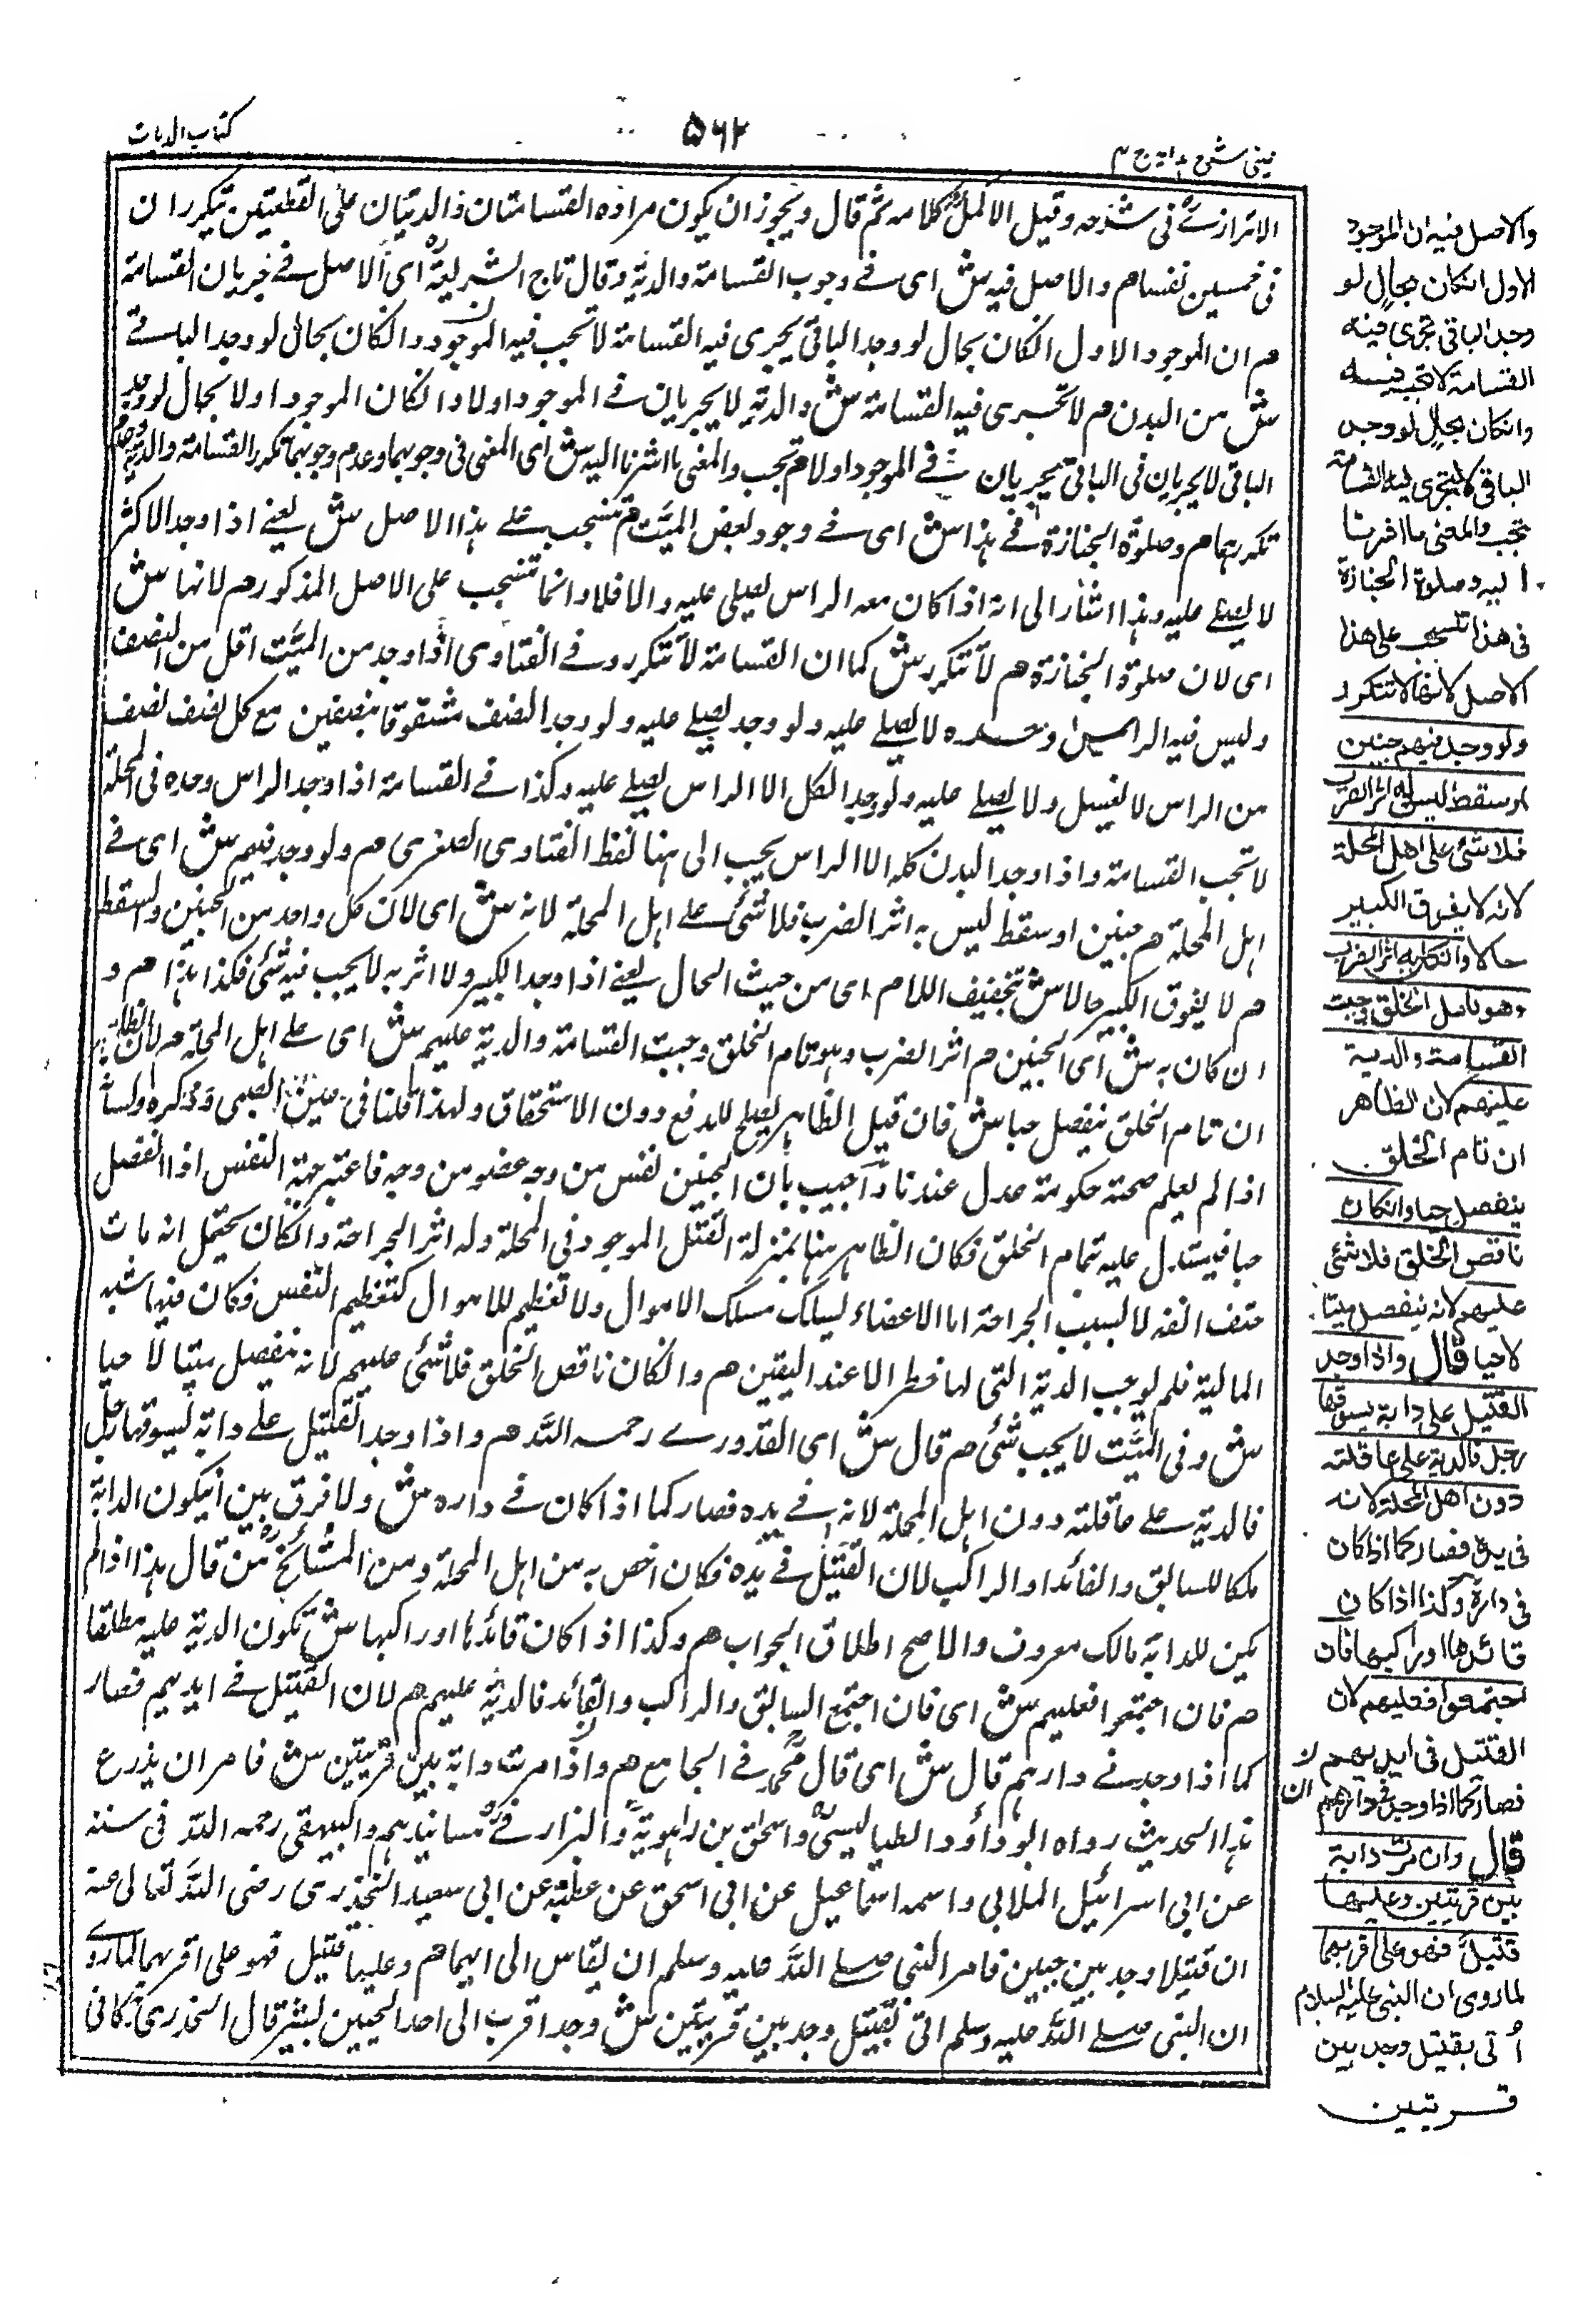 عيني شرح هداية ج ٤
٥٦٢
كتاب الديات
الاترازى فى شرحه وقيل الاكمل كلامه ثم قال ويجوز ان يكون مراده القسامتان والديتان على القطعتين يتكرران
فى خمسين نفسا هم والاصل فيه ش اى فى وجوب القسامة والدية وقال تاج الشريعة اى الاصل فى جريان القسامة
هم ان الموجود الاول ان كان بحال لو وجد الباقى يجرى فيه القسامة لا تجب فيه الموجود وان كان بحال لو وجد الباقى
ش من البدن هم لا تجرى فيه القسامة ش والدية لا يجريان فى الموجود اولا وان كان الموجود اولا بحال لو وجد
الباقى لا يجريان فى الباقى يجريان فى الموجود اولا هم تجب والمعنى ما اشرنا اليه ش اى المعنى فى وجوبهما وعدم وجوبهما تكرر القسامة والدية وعدم
تكررهما هم وصلوة الجنازة فى هذا ش اى فى وجود بعض الميت هم تنسحب على هذا الاصل ش يعنى اذا وجد الاكثر
لا يصلى عليه وهذا اشار الى انه اذا كان معه الراس يصلى عليه والا فلا وانما تنسحب على الاصل المذكور هم لانها ش
اى لان صلوة الجنازة هم لا تتكرر ش كما ان القسامة لا تتكرر وفى الفتاوى اذا وجد من الميت اقل من النصف
وليس فيه الراس وحده لا يصلى عليه ولو وجد يصلى عليه ولو وجد النصف مشقوقا بنصفين مع كل نصف نصف
من الراس لا يغسل ولا يصلى عليه ولو وجد الكل الا الراس يصلى عليه وكذا فى القسامة اذا وجد الراس وحده فى المحلة
لا تجب القسامة واذا وجد البدن كله الا الراس يجب الى هنا لفظ الفتاوى الصغرى هم ولو وجد فيهم ش اى فى
اهل المحلة هم جنين او سقط ليس به اثر الضرب فلا شئ على اهل المحلة لانه ش اى لان كل واحد من الجنين والسقط
هم لا يفوق الكبير حالا ش بتخفيف اللام اى من حيث الحال يعنى اذا وجد الكبير ولا اثر به لا يجب فيه شئ فكذا هذا هم و
ان كان به ش اى الجنين هم اثر الضرب وهو تام الخلق وجبت القسامة والدية عليهم ش اى على اهل المحلة هم لان الظاهر
ان تام الخلق ينفصل حيا ش فان قيل الظاهر يصلح للدفع دون الاستحقاق ولهذا قلنا فى عين الصبى وذكره ولسانه
اذا لم يعلم صحته حكومة عدل عندنا واجيب بان الجنين نفس من وجه عضو من وجه فاعتبر جهة النفس اذا انفصل
حيا فيستدل عليه تمام الخلق فكان الظاهر هنا بمنزلة القتل الموجود فى المحلة وله اثر الجراحة وان كان يحتمل انه مات
حتف انفه لا بسبب الجراحة اما الاعضاء يسلك مسلك الاموال ولا تعظيم للاموال كتعظيم النفس فكان فيها شبه
المالية فلم يوجب الدية التى لها خطر الا عند اليقين هم وان كان ناقص الخلق فلا شئ عليهم لانه ينفصل ميتا لا حيا
ش وفى الميت لا يجب شئ هم قال ش اى القدورى رحمه الله هم واذا وجد القتيل على دابة يسوقها رجل
فالدية على عاقلته دون اهل المحلة لانه فى يده فصار كما اذا كان فى داره ش ولا فرق بين ان يكون الدابة
ملكا للسائق والقائد او الراكب لان القتيل فى يده فكان اخص به من اهل المحلة ومن المشائخ من قال هذا اذا لم
يكن للدابة مالك معروف والاصح اطلاق الجواب هم وكذا اذا كان قائدها او راكبها ش تكون الدية عليه مطلقا
هم فان اجتمعوا فعليهم ش اى فان اجتمع السائق والراكب والقائد فالدية عليهم هم لان القتيل فى ايديهم فصار
كما اذا وجد فى دارهم قال ش اى قال محمد فى الجامع هم واذا مرت دابة بين قريتين ش فامر ان يذرع
هذا الحديث رواه ابو داود الطيالسى واسحق بن راهويه والبزار فى مسانيدهم والبيهقى رحمه الله فى سننه
عن ابى اسرائيل الملائى واسمه اسماعيل عن ابى اسحق عن عطية عن ابى سعيد الخدرى رضى الله تعالى عنه
ان قتيلا وجد بين حيين فامر النبى صلى الله عليه وسلم ان يقاس الى ايهما هم وعليها قتيل فهو على اقربهما لما روى
ان النبى صلى الله عليه وسلم اتى بقتيل وجد بين قريتين ش وجد اقرب الى احد الحيين بشبر قال الخدرى كانى
والاصل فيه ان الموجود
الاول ان كان بحال لو
وجد الباقى تجرى فيه
القسامة لا تجب فيه
وان كان بحال لو وجد
الباقى لا يجرى فيه القسامة
تجب والمعنى ما اشرنا
اليه وصلوة الجنازة
فى هذا تنسحب على هذا
الاصل لانها لا تتكرر
ولو وجد فيهم جنين
او سقط ليس به اثر الضرب
فلا شئ على اهل المحلة
لانه لا يفوق الكبير
حالا وان كان به اثر الضرب
وهو تام الخلق وجبت
القسامة والدية
عليهم لان الظاهر
ان تام الخلق
ينفصل حيا وان كان
ناقص الخلق فلا شئ
عليهم لانه ينفصل ميتا
لا حيا قال واذا وجد
القتيل على دابة يسوقها
رجل فالدية على عاقلته
دون اهل المحلة لانه
فى يده فصار كما اذا كان
فى داره وكذا اذا كان
قائدها او راكبها فان
اجتمعوا فعليهم لان
القتيل فى ايديهم
فصار كما اذا وجد فى دارهم
قال وان مرت دابة
بين قريتين وعليها
قتيل فهو على اقربهما
لما روى ان النبى عليه السلام
أتى بقتيل وجد بين
قريتين